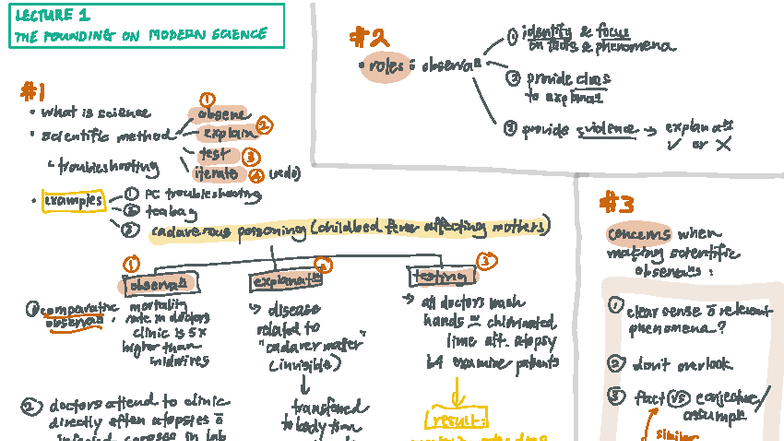 LECTURE 1
THE FOUNDING ON MODERN SCIENCE
#1
• what is science
• scientific method
① observe
explain ②
test ③
iterate ④ (redo)
↳ troubleshooting
• examples
① PC troubleshooting
② teabag
③ cadaverous poisoning (childbed fever affecting mothers)
① observatn
explanatn ②
testing ③
① comparative observatn:
mortality
rate in doctors
clinic is 5x
higher than
midwives
② doctors attend to clinic
directly after autopsies c̄
infected corpses in lab
↳ disease
related to
"cadaver matter"
(invisible)
↓
transferred
to body from
→ all doctors wash
hands c̄ chlorinated
lime aft. autopsy
b4 examine patients
↓
result:
#2
• roles: observatn
① identify & focus
on facts & phenomena
② provide clues
to explanatn
③ provide evidence → explanatn
✓ or X
#3
concerns when
making scientific
observatns:
① clear sense c̄ relevant
phenomena?
② don't overlook
③ fact vs conjecture/
assumptn
similar